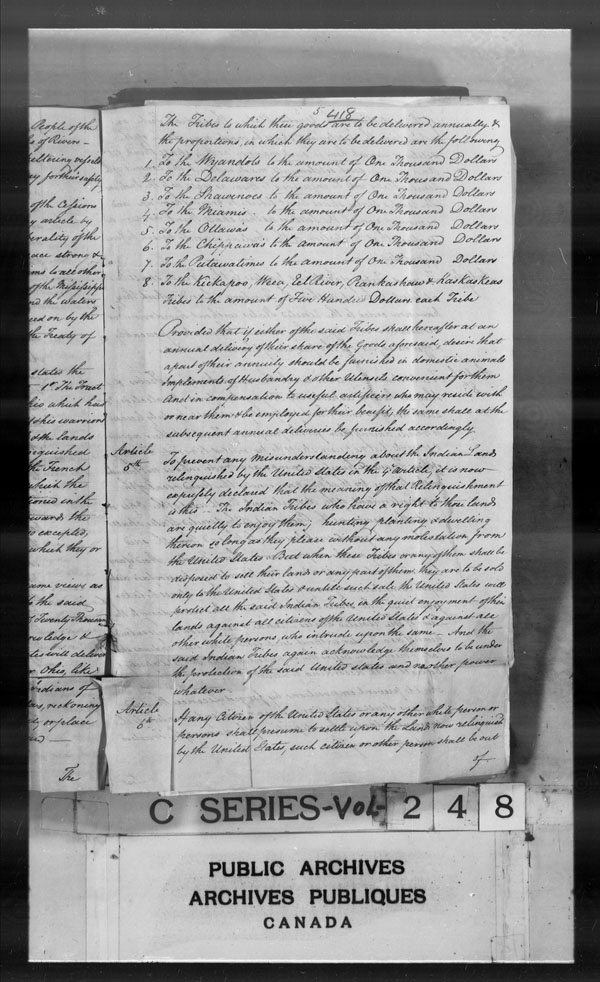 People of the
s of Rivers -
y for their supply
of the Cessions
y article by
erality of the
ms to all other
of the Mississippi
nd the waters
ed on by the
the Treaty of
states the
1st The Tract
hio which had
& his warriors
& the lands
inquished
the French
which the
tioned in the
wards the
so excepted,
which they or
ame views as
to the said
of Twenty Thousand
les will deliver
r. Ohio, like
Indians of
ars, reckoning
ty or place
The
5 418
The Tribes to which these goods are to be delivered annually &
the proportions, in which they are to be delivered are the following
1. To the Wyandots to the amount of One Thousand Dollars
2. To the Delawares to the amount of One Thousand Dollars
3. To the Shawenoes to the amount of One Thousand Dollars
4. To the Miamis to the amount of One Thousand Dollars
5. To the Ottawas to the amount of One Thousand Dollars
6. To the Chippawas to the amount of One Thousand Dollars
7. To the Putawatimes to the amount of One Thousand Dollars
8. To the Kickapoo, Weea, Eel River, Piankashaw & Kaskaskeas
Tribes to the amount of Five Hundred Dollars each Tribe
Provided that if either of the said Tribes shall hereafter at an
annual delivery of their share of the Goods aforesaid, desire that
a part of their annuity should be furnished in domestic animals
Implements of Husbandry & other Utensils convenient for them
And in compensation to useful artificers who may reside with
or near them & be employed for their benefit, the same shall at the
subsequent annual deliveries be furnished accordingly.
Article
5th
To prevent any misunderstanding about the Indian Lands
relinquished by the United States in the 4th article, it is now
expressly declared that the meaning of that Relinquishment
is this - The Indian Tribes who have a right to those lands
are quietly to enjoy them; hunting, planting & dwelling
thereon so long as they please without any molestation from
the United States - But when these Tribes or any of them shall be
disposed to sell their lands or any part of them, they are to be sold
only to the United States & until such sale the United States will
protect all the said Indian Tribes in the quiet enjoyment of their
lands against all citizens of the United States & against all
other white persons who intrude upon the same - And the
said Indian Tribes again acknowledge themselves to be under
the protection of the said United States and no other power
whatever
Article
6th
If any Citizen of the United States or any other white person or
persons shall presume to settle upon the Lands now relinquished
by the United States, such citizen or other person shall be out
of
C SERIES - VOL - 2 4 8
PUBLIC ARCHIVES
ARCHIVES PUBLIQUES
CANADA